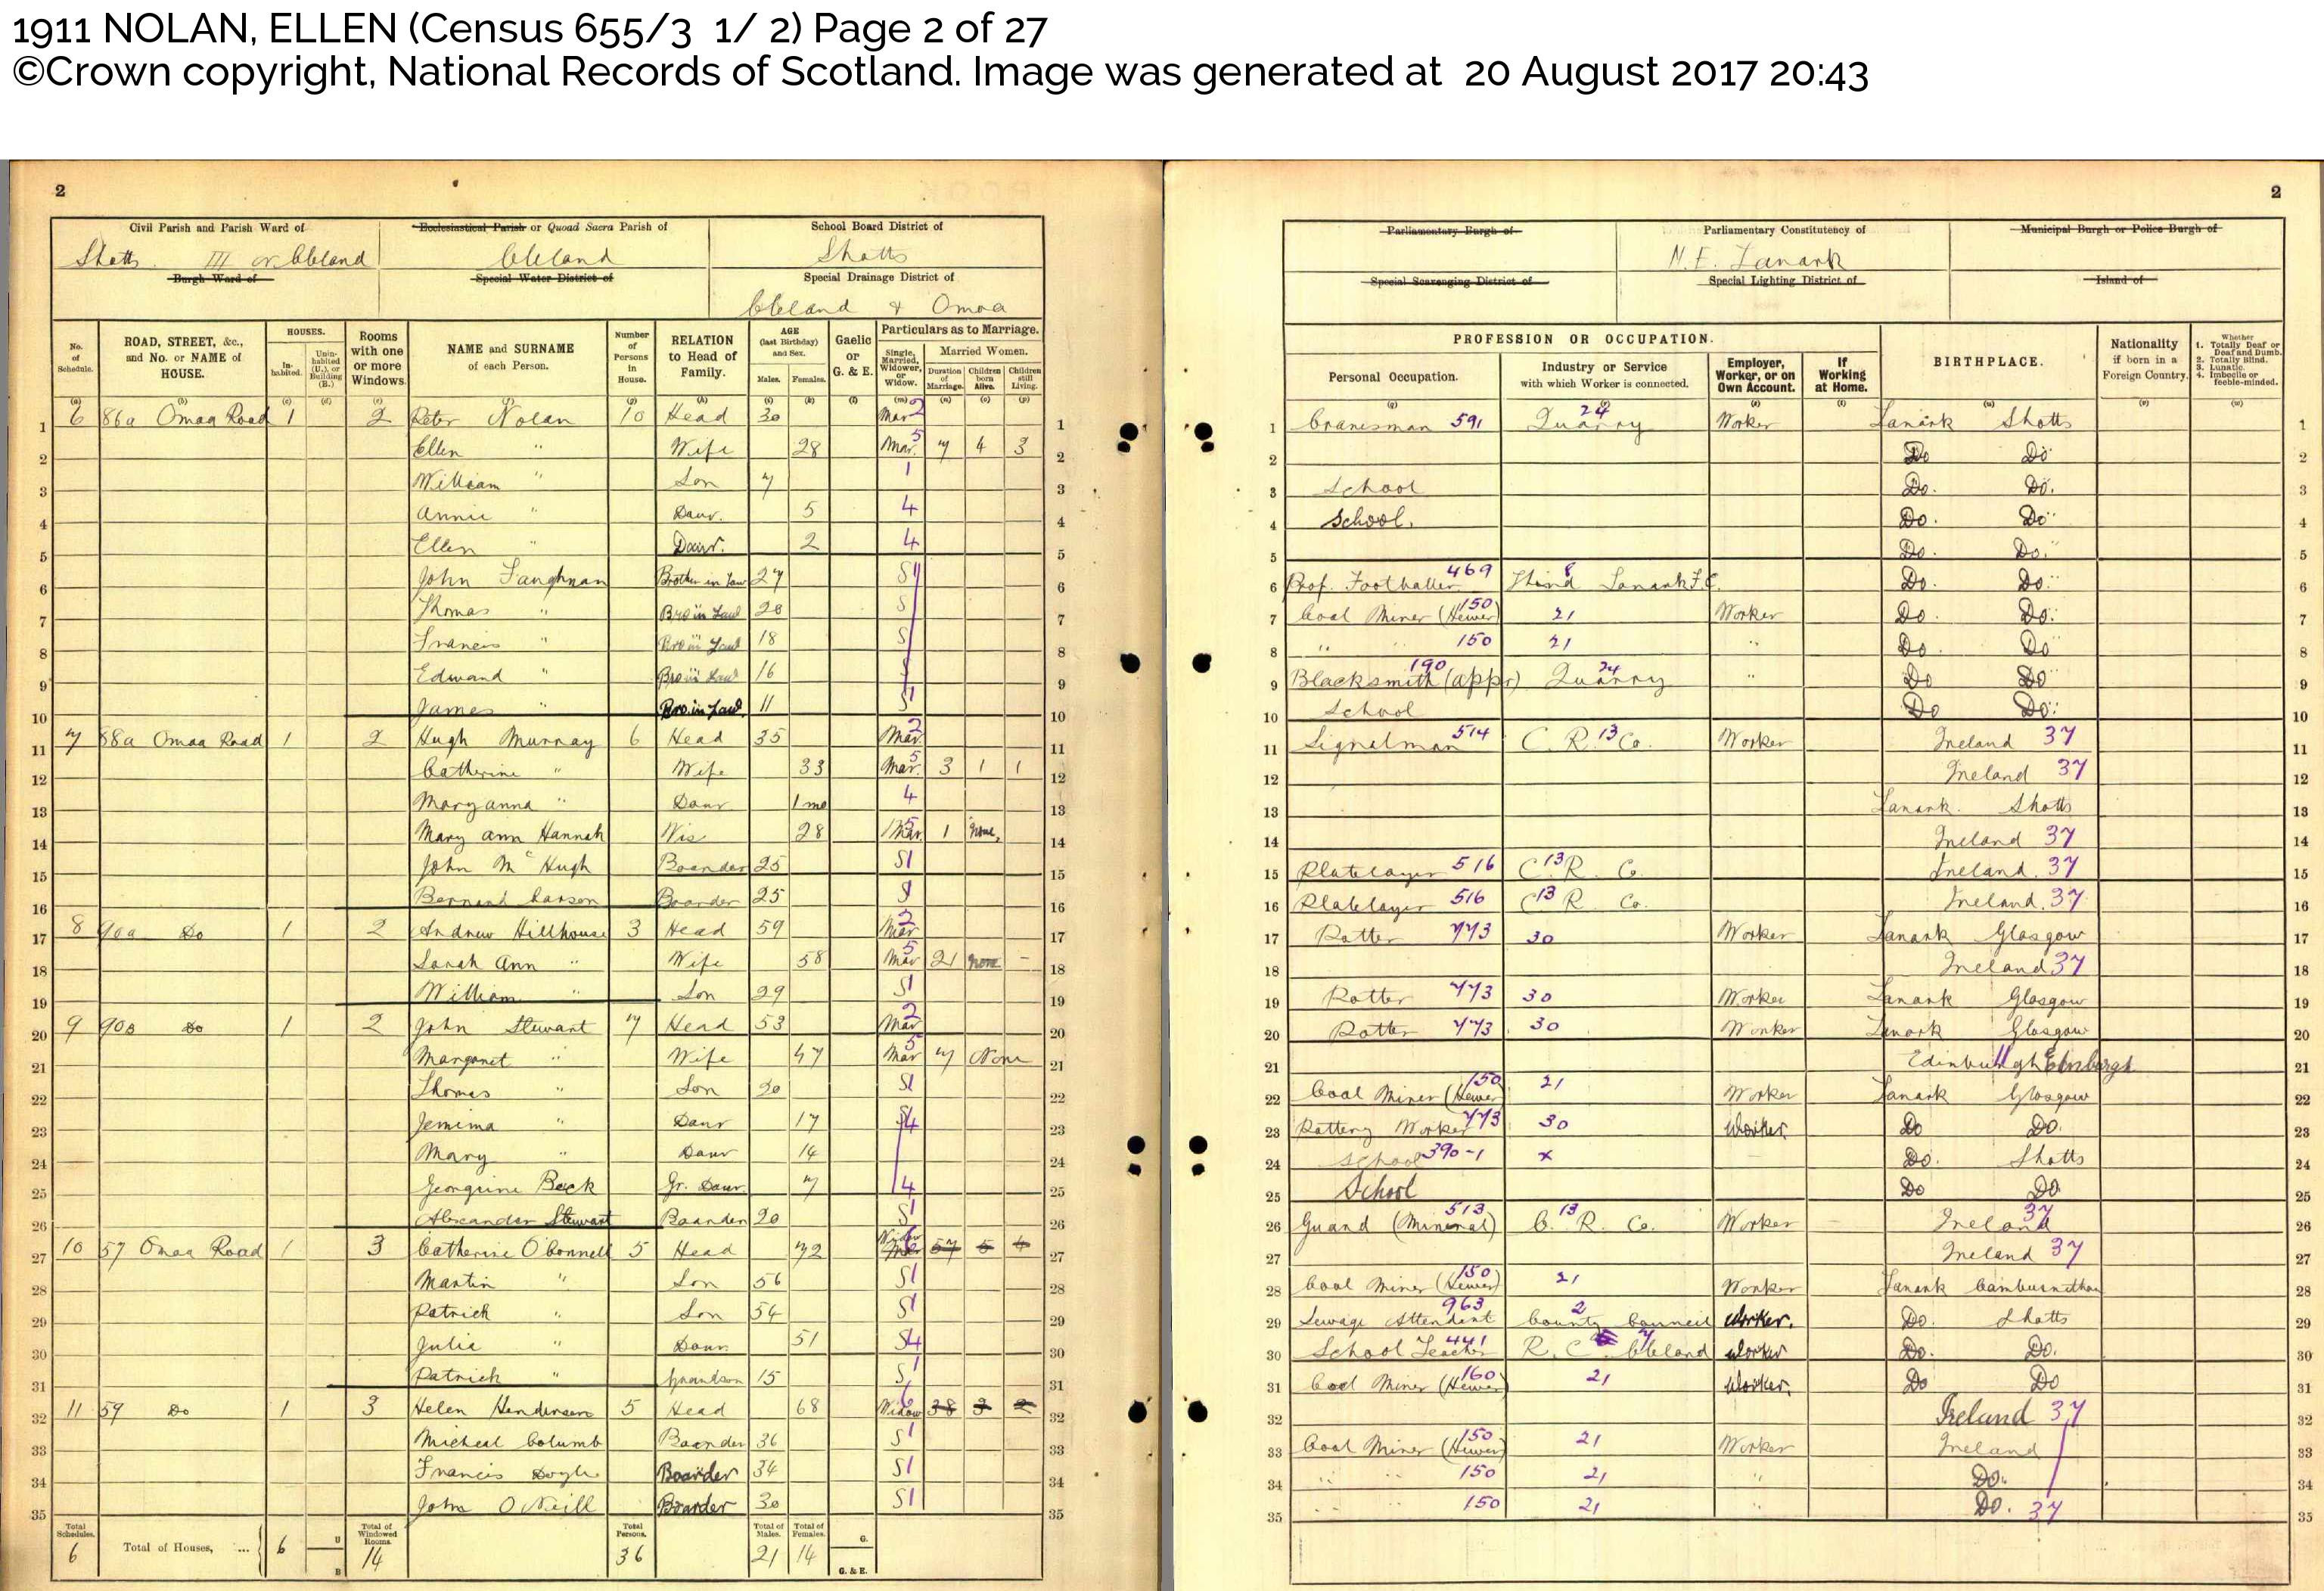 1911 NOLAN, ELLEN (Census 655/3 1/ 2) Page 2 of 27
©Crown copyright, National Records of Scotland. Image was generated at 20 August 2017 20:43
2
Civil Parish and Parish Ward of Ecclesiastical Parish or Quoad Sacra Parish of School Board District of
Shotts III or Cleland Cleland Shotts
Burgh Ward of Special Water District of Special Drainage District of
Cleland & Omoa
No. of Schedule. ROAD, STREET, &c., and No. or NAME of HOUSE. HOUSES. Inhabited. Uninhabited (U.), or Building (B.) Rooms with one or more Windows. NAME and SURNAME of each Person. Number of Persons in House. RELATION to Head of Family. AGE (last Birthday) and Sex. Males. Females. Gaelic or G. & E. Particulars as to Marriage. Single, Married, Widower, or Widow. Married Women. Duration of Marriage. Children born Alive. Children still Living.
1 6 86a Omoa Road 1 2 Peter Nolan 10 Head 30 Mar 2 1
2 Ellen " Wife 28 Mar. 5 7 4 3 2
3 William " Son 7 1 3
4 Annie " Daur. 5 4 4
5 Ellen " Daur. 2 4 5
6 John Faughnan Brother in Law 27 S 1 6
7 Thomas " Bro in Law 20 S 7
8 Francis " Bro in Law 18 S 8
9 Edward " Bro in Law 16 S 9
10 James " Bro. in Law 11 S 1 10
11 7 88a Omoa Road 1 2 Hugh Murray 6 Head 35 Mar. 2 11
12 Catherine " Wife 33 Mar. 5 3 1 1 12
13 Mary anna " Daur 1 mo 4 13
14 Mary ann Hannah Vis 28 Mar. 5 1 None, 14
15 John McHugh Boarder 25 S 1 15
16 Bernard Carson Boarder 25 S 1 16
17 8 90a Do 1 2 Andrew Hillhouse 3 Head 59 Mar 2 17
18 Sarah Ann " Wife 58 Mar 5 21 None - 18
19 William " Son 29 S 1 19
20 9 90B Do 1 2 John Stewart 7 Head 53 Mar 2 20
21 Margaret " Wife 47 Mar 5 7 None 21
22 Thomas " Son 20 S 1 22
23 Jemima " Daur 17 S 4 23
24 Mary " Daur 14 24
25 Georgina Beck Gr. Daur. 7 4 25
26 Alexander Stewart Boarder 20 S 1 26
27 10 57 Omoa Road 1 3 Catherine O'Connell 5 Head 72 Widow 6 57 5 4 27
28 Martin " Son 56 S 1 28
29 Patrick " Son 54 S 1 29
30 Julia " Daur 51 S 4 30
31 Patrick " Grandson 15 S 1 31
32 11 59 Do 1 3 Helen Henderson 5 Head 68 Widow 6 38 3 2 32
33 Micheal Columb Boarder 36 S 1 33
34 Francis Doyle Boarder 34 S 1 34
35 John O'Neill Boarder 30 S 1 35
Total Schedules. 6 Total of Houses, ... 6 U B Total of Windowed Rooms. 14 Total Persons. 36 Total of Males. 21 Total of Females. 14 G. G. & E.
2
Parliamentary Burgh of Parliamentary Constituency of Municipal Burgh or Police Burgh of
N.E. Lanark
Special Scavenging District of Special Lighting District of Island of
PROFESSION OR OCCUPATION. Personal Occupation. Industry or Service with which Worker is connected. Employer, Worker, or on Own Account. If Working at Home. BIRTHPLACE. Nationality if born in a Foreign Country. Whether 1. Totally Deaf or Deaf and Dumb. 2. Totally Blind. 3. Lunatic. 4. Imbecile or feeble-minded.
1 Cranesman 591 Quarry 24 Worker Lanark Shotts 1
2 Do Do 2
3 School Do. Do. 3
4 School. Do. Do 4
5 Do. Do. 5
6 Prof. Footballer 469 Third Lanark F.C. 8 Do. Do. 6
7 Coal Miner (Hewer) 150 21 Worker Do. Do. 7
8 " " 150 21 " Do. Do 8
9 Blacksmith (appr) 190 Quarry 24 " Do Do 9
10 School Do Do. 10
11 Signalman 514 C. R. Co. 13 Worker Ireland 37 11
12 Ireland 37 12
13 Lanark. Shotts 13
14 Ireland 37 14
15 Platelayer 516 C. R. Co. 13 Ireland. 37 15
16 Platelayer 516 C. R. Co. 13 Ireland. 37 16
17 Potter 773 30 Worker Lanark Glasgow 17
18 Ireland 37 18
19 Potter 773 30 Worker Lanark Glasgow 19
20 Potter 773 30 Worker Lanark Glasgow 20
21 Edinburgh 11 Edinburgh 21
22 Coal Miner (Hewer 150 21 Worker Lanark Glasgow 22
23 Pottery Worker 773 30 Worker. Do Do. 23
24 School 390-1 x Do. Shotts 24
25 School Do Do 25
26 Guard (Mineral) 513 C. R. Co. 13 Worker Ireland 37 26
27 Ireland 37 27
28 Coal Miner (Hewer) 150 21 Worker Lanark Cambusnethan 28
29 Sewage Attendant 963 County Council 2 Worker. Do. Shotts 29
30 School Teacher 441 R. C. Cleland 7 Worker Do. Do. 30
31 Coal Miner (Hewer) 160 21 Worker. Do Do 31
32 Ireland 37 32
33 Coal Miner (Hewer) 150 21 Worker Ireland 33
34 " " 150 21 " Do. 34
35 " " 150 21 " Do. 37 35